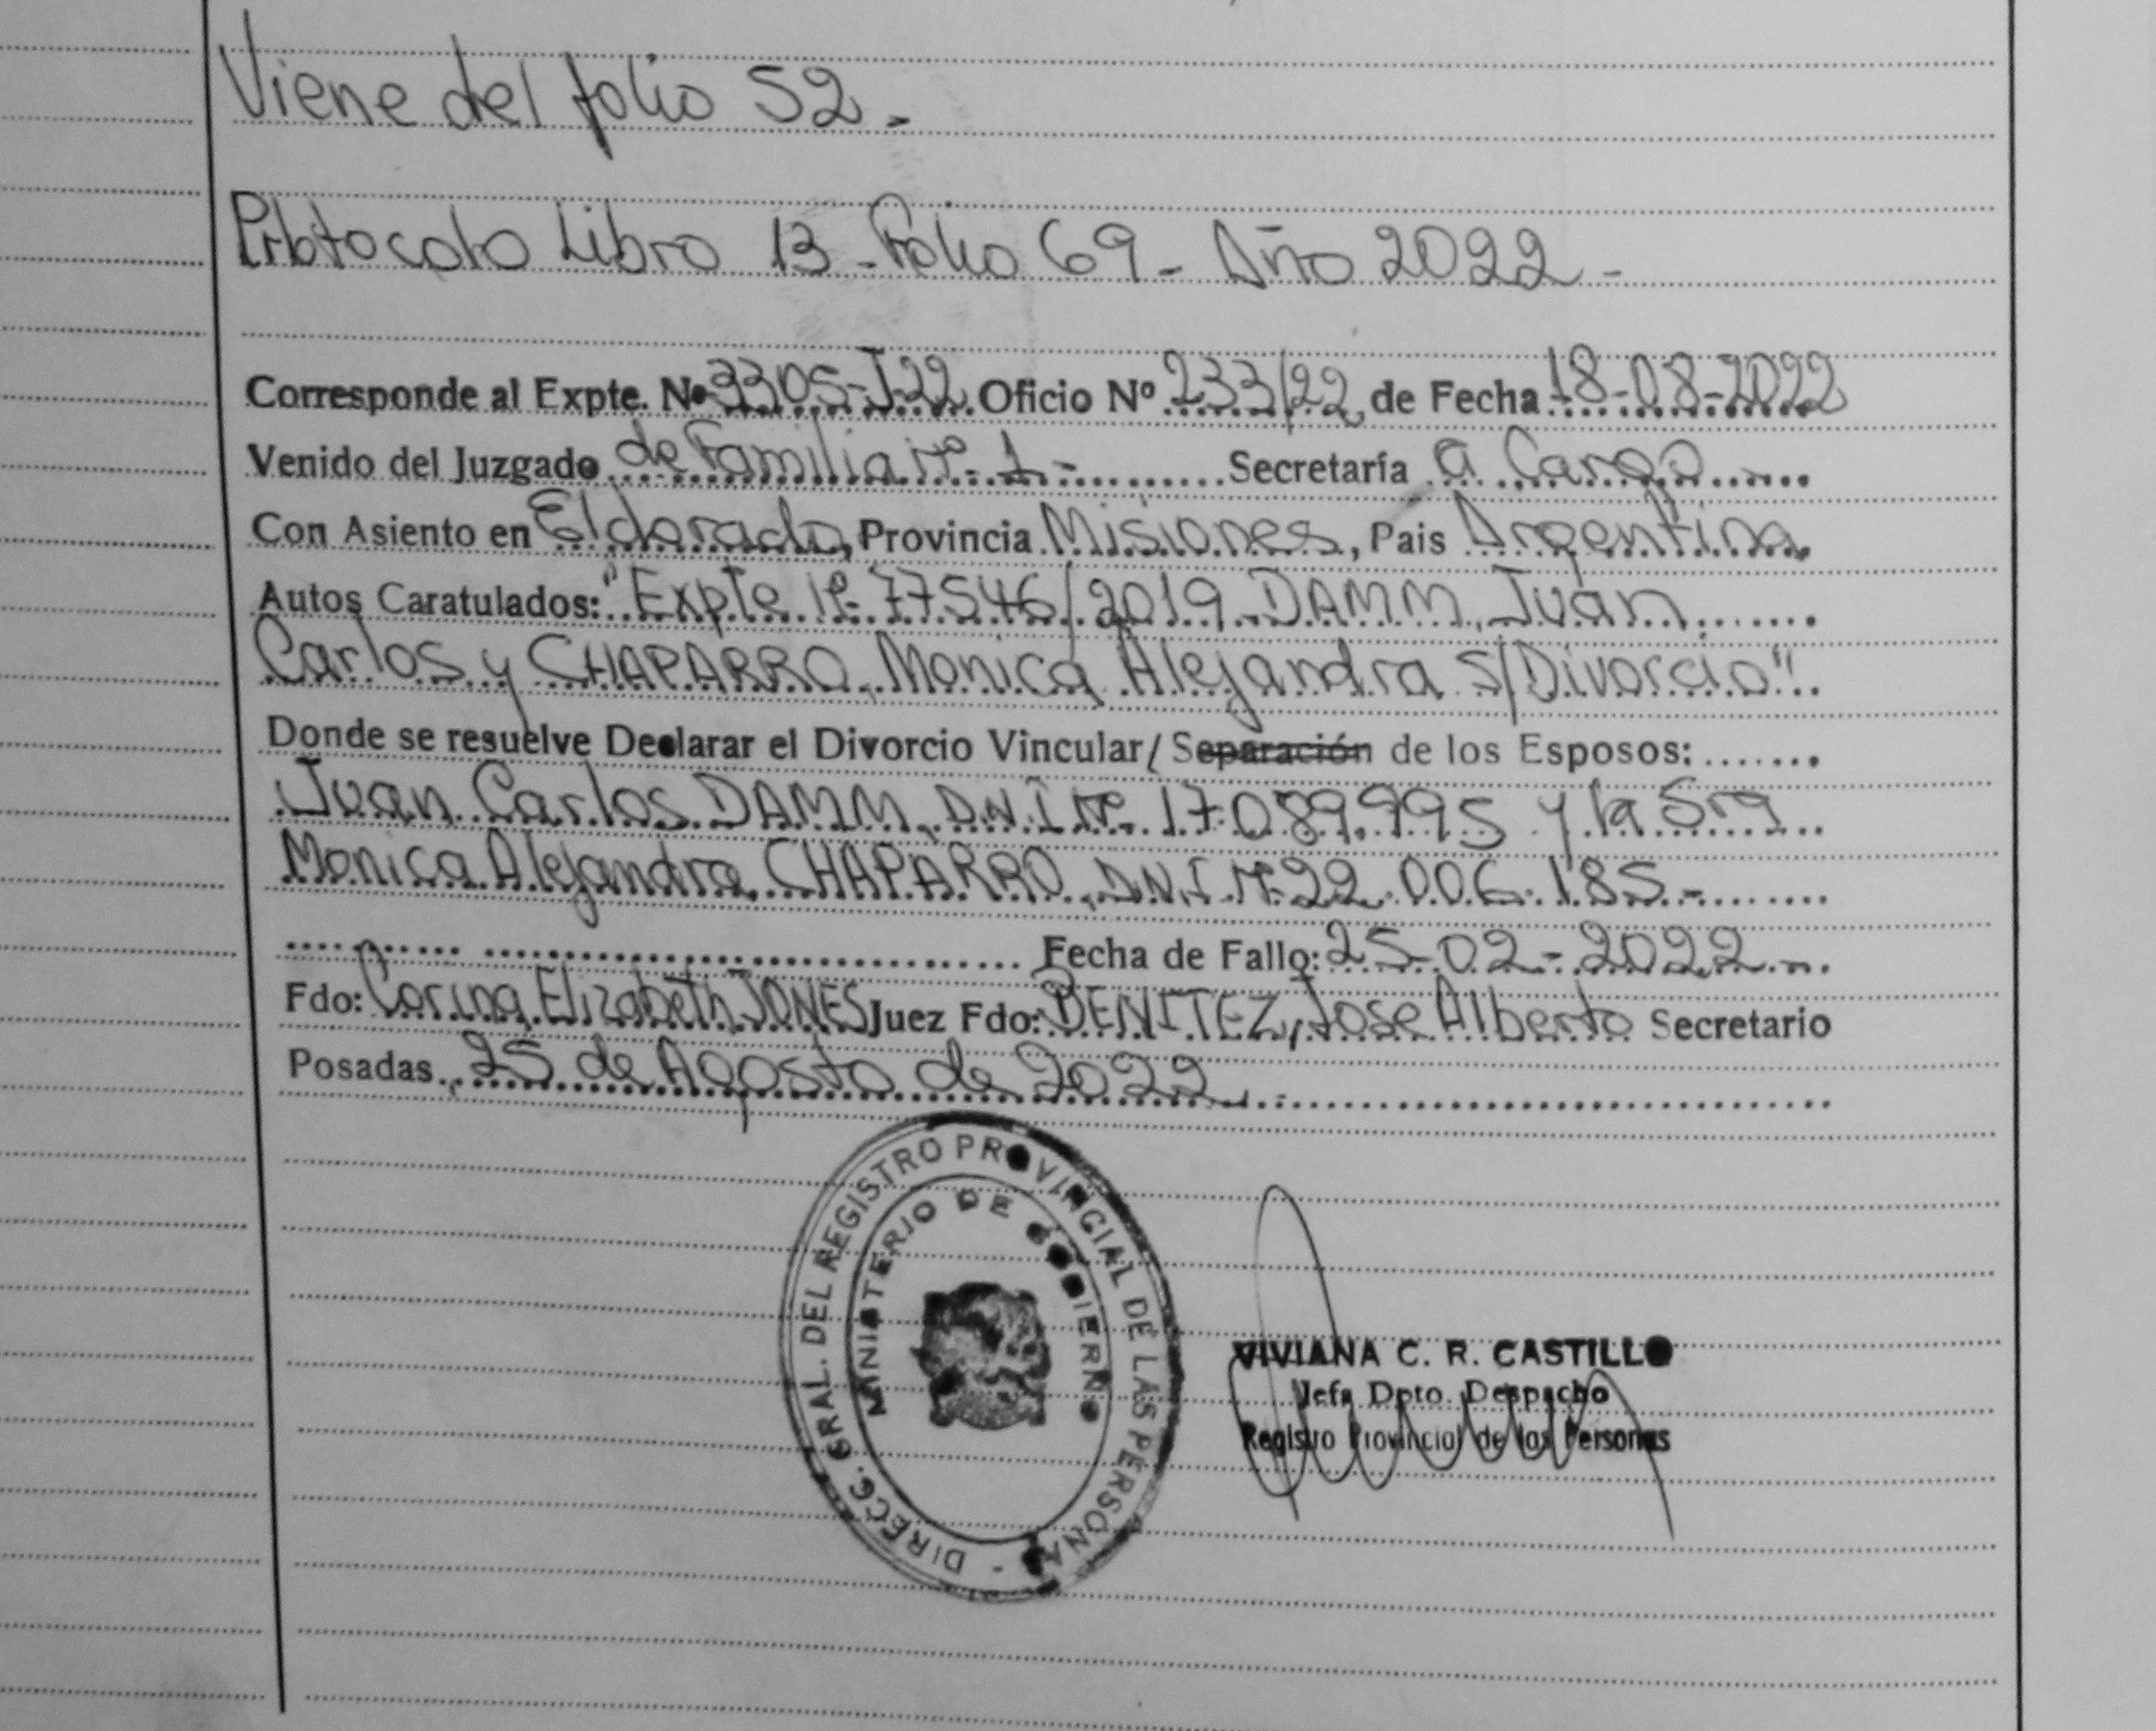 Viene del folio 52.
Protocolo Libro 13 - Folio 69 - Año 2022 -
Corresponde al Expte. Nº 3305-J-22 Oficio Nº 233/22 de Fecha 18-08-2022
Venido del Juzgado de Familia Nº 1 - Secretaría a Cargo
Con Asiento en Eldorado, Provincia Misiones, Pais Argentina
Autos Caratulados: "Expte Nº 77546/2019 DAMM, Juan
Carlos y CHAPARRO, Monica Alejandra S/Divorcio"
Donde se resuelve Declarar el Divorcio Vincular/ Separación de los Esposos:
Juan Carlos DAMM, D.N.I Nº 17.089.995 y la Sra
Monica Alejandra CHAPARRO, D.N.I Nº 22.006.185 -
Fecha de Fallo: 25-02-2022
Fdo: Corina Elizabeth JONES Juez Fdo: BENITEZ, Jose Alberto Secretario
Posadas, 25 de Agosto de 2022
DIRECC. GRAL. DEL REGISTRO PROVINCIAL DE LAS PERSONAS -
MINISTERIO DE GOBIERNO
VIVIANA C. R. CASTILLO
Jefa Dpto. Despacho
Registro Provincial de las Personas